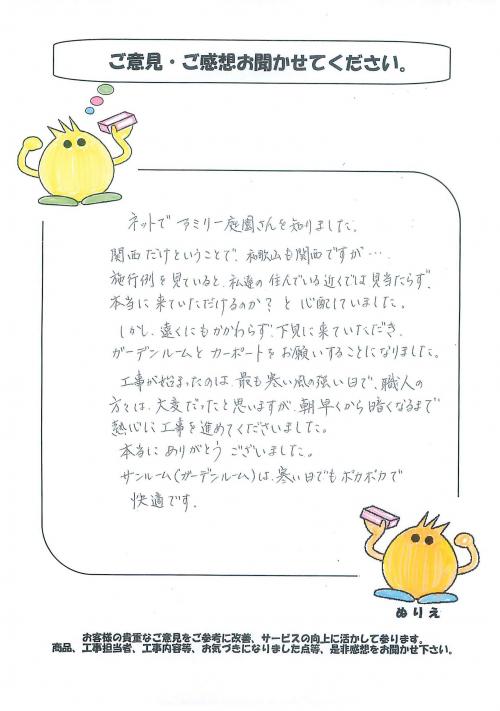 ご意見・ご感想お聞かせてください。
ネットで ファミリー庭園さんを知りました。
関西だけということで、和歌山も関西ですが…、
施行例を見ていると、私達の住んでいる近くでは見当たらず、
本当に来ていただけるのか?と心配していました。
しかし、遠くにもかかわらず、下見に来ていただき、
ガーデンルームとカーポートをお願いすることになりました。
工事が始まったのは、最も寒い風の強い日で、職人の
方々は、大変だったと思いますが、朝早くから暗くなるまで
熱心に工事を進めてくださいました。
本当にありがとうございました。
サンルーム(ガーデンルーム)は、寒い日でもポカポカで
快適です。
ぬりえ
お客様の貴重なご意見をご参考に改善、サービスの向上に活かして参ります。
商品、工事担当者、工事内容等、お気づきになりました点等、是非感想をお聞かせ下さい。